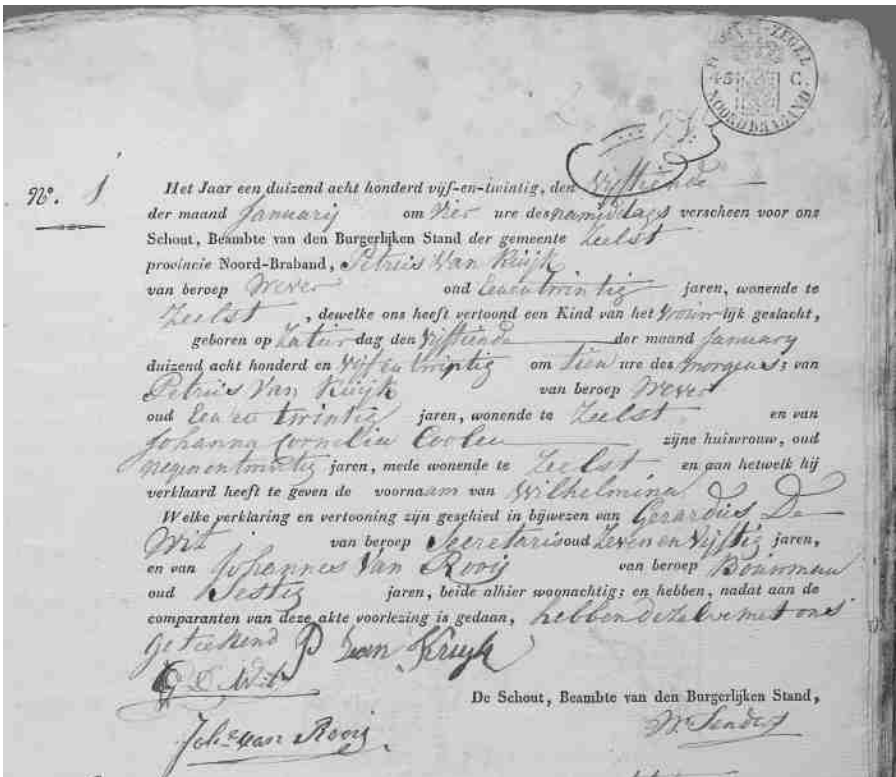 KLEIN ZEGEL
45 C.
NOORD BRABAND
2
No. 1
Het Jaar een duizend acht honderd vijf-en-twintig, den Vijftiende
der maand Januarij om Vier ure des namiddags verscheen voor ons
Schout, Beambte van den Burgerlijken Stand der gemeente Zeelst
provincie Noord-Braband, Petrus Van Kuijk
van beroep Wever oud Eenentwintig jaren, wonende te
Zeelst, dewelke ons heeft vertoond een Kind van het Vrouwlijk geslacht,
geboren op Zaturdag den Vijftiende der maand January
duizend acht honderd en Vijf en twintig om tien ure des morgens; van
Petrus Van Kuijk van beroep Wever
oud Een en twintig jaren, wonende te Zeelst en van
Johanna Cornelia Coolen zijne huisvrouw, oud
negenentwintig jaren, mede wonende te Zeelst en aan hetwelk hij
verklaard heeft te geven de voornaam van Wilhelmina
Welke verklaring en vertooning zijn geschied in bijwezen van Gerardus De
Wit van beroep Secretaris oud Zeven en Vijftig jaren,
en van Johannes Van Rooij van beroep Bouwman
oud Sestig jaren, beide alhier woonachtig; en hebben, nadat aan de
comparanten van deze akte voorlezing is gedaan, hebben dezelve met ons
geteekend P van Kuyk
G D Wit
De Schout, Beambte van den Burgerlijken Stand,
Joh. van Rooij